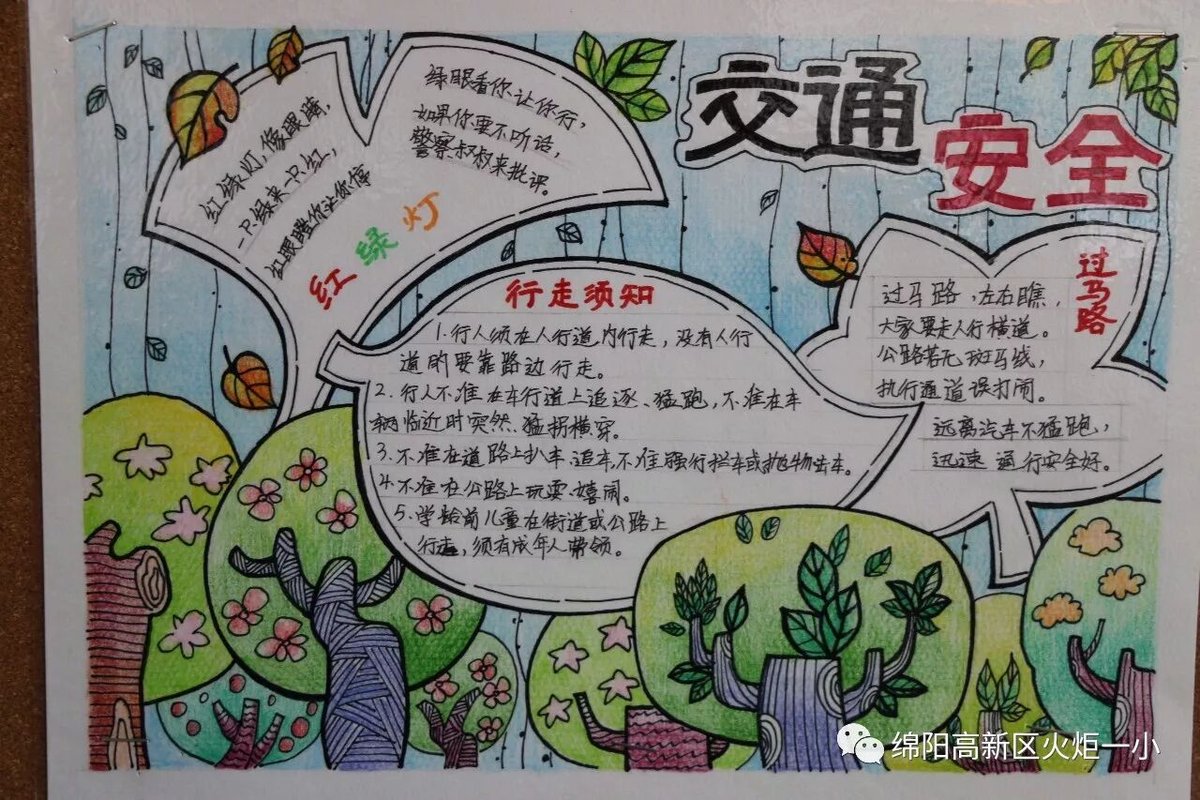 交通
安全
红绿灯,像眼睛,
一只绿来一只红,
红眼瞪你让你停
绿眼看你让你行,
如果你要不听话,
警察叔叔来批评。
红绿灯
行走须知
1.行人须在人行道内行走,没有人行
道的要靠路边行走。
2.行人不准在车行道上追逐、猛跑,不准在车
辆临近时突然、猛拐横穿。
3.不准在道路上扒车、追车,不准强行拦车或抛物击车。
4.不准在公路上玩耍、嬉闹。
5.学龄前儿童在街道或公路上
行走,须有成年人带领。
过马路
过马路,左右瞧,
大家要走人行横道。
公路若无斑马线,
执行通道误打闹。
远离汽车不猛跑,
迅速通行安全好。
绵阳高新区火炬一小